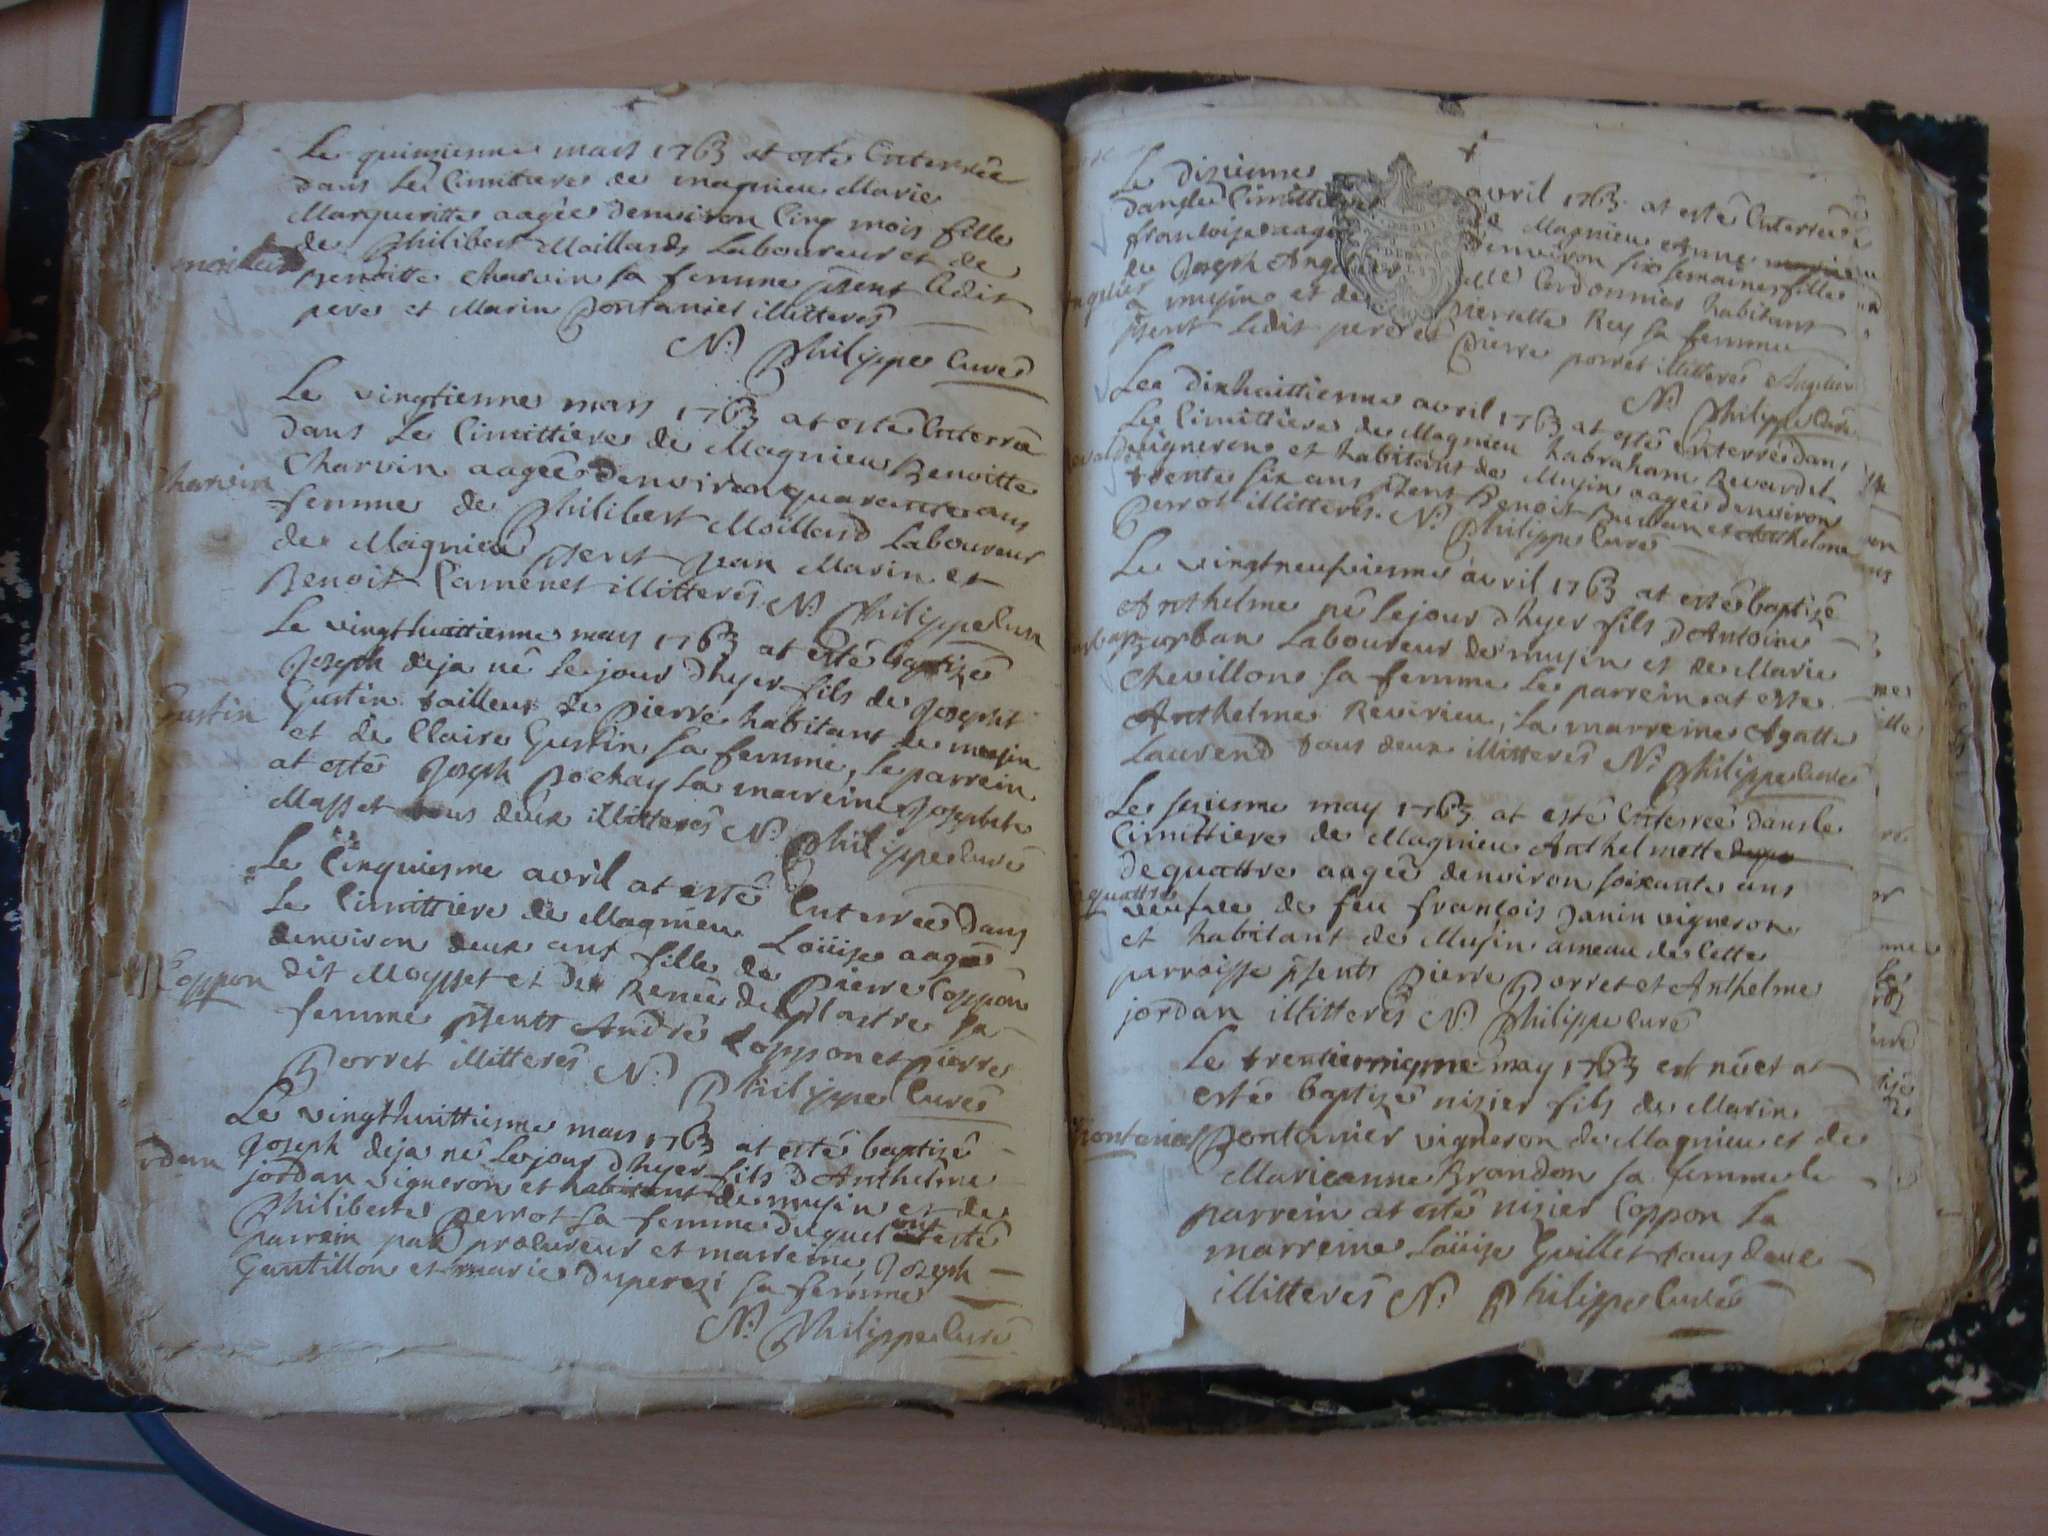 Le quinzieme mars 1763 at esté Enterrée
dans Le Cimittiere de magnieu Marie
Margueritte aagée denviron Cinq mois fille
de Philibert Moillard Laboureur et de
moillard
Benoitte charvin sa femme psent Ledit
pere et Marin Pontanier illitterés
N. Philippe Curé
Le vingtienne mars 1763 at esté Enterrée
dans Le Cimittiere de Magnieu Benoitte
Charvin aagée denviron quarente ans
charvin
femme de Philibert Moillard Laboureur
de Magnieu psent Jean Marin et
Benoit Camenet illitterés N. Philippe Curé
Le vingthuittienne mars 1763 at esté baptizé
Joseph deja né le jour dhyer fils de Joseph
Gustin tailleur de Pierre habitant de musin
Gustin
et de Claire Gustin sa femme, Le parrein
at esté Joseph Pochay La marreine Josephte
Masset tous deux illitterés N. Philippe Curé
Le Cinquiesme avril at esté Enterrée dans
Le Cimittiere de Magnieu Loüise aagée
denviron deux ans fille de Pierre Coppon
Coppon
dit Moysset et de Renée de plastre sa
femme psents André Coppon et Pierre
Porret illitterés N. Philippe Curé
Le vingthuittiesme mars 1763 at esté baptizé
Joseph deja né Le jour dhyer fils D Anthelme
jordan
jordan vigneron et habitant de musin et de
Philiberte Perrot sa femme duquel ont esté
parrein par procureur et marreine, Joseph
Gantillon et marie duperozi sa femme
N. Philippe Curé
Le dizienne avril 1763 at esté Enterrée
dans Le Cimittiere de Magnieu Anne
francoise aagée denviron six semaines fille
de Joseph Angelier Cordonnier habitant
Angelier
a musin et de Pierrette Rey sa femme
psent Ledit pere et Pierre porret illitterés Angelier
N. Philippe Curé
Lee dixhuittienne avril 1763 at esté Enterré dans
Le Cimittiere de Magnieu habraham Revardel
vigneron et habitant de Musin aagé denviron
trente six ans psent Benoit et Anthelme
Perrot illitterés. N. Philippe Curé
Le vingtneufvienne avril 1763 at esté baptizé
Anthelme né Le jour dhyer fils D Antoine
urban Laboureur de musin et de Marie
Chevillon sa femme Le parrein at esté
Anthelme Revirieu, La marreine Agatte
Laurend tous deux illitterés N. Philippe Curé
Le seziesme may 1763 at esté Enterrée dans Le
Cimittiere de Magnieu Anthelmette
Dequattre aagée denviron soixante ans
quattre
veufve de feu françois Janin vigneron
et habitant de Musin ameau de Cette
parroisse psents Pierre Porret et Anthelme
jordan illitterés N. Philippe Curé
Le may 1763 est né et at
esté baptizé nizier fils de Marin
Pontanier
Pontanier vigneron de Magnieu et de
Marieanne Brandon sa femme le
parrein at esté nizier Coppon La
marreine Loüise Guillet tous deux
illitterés N. Philippe Curé